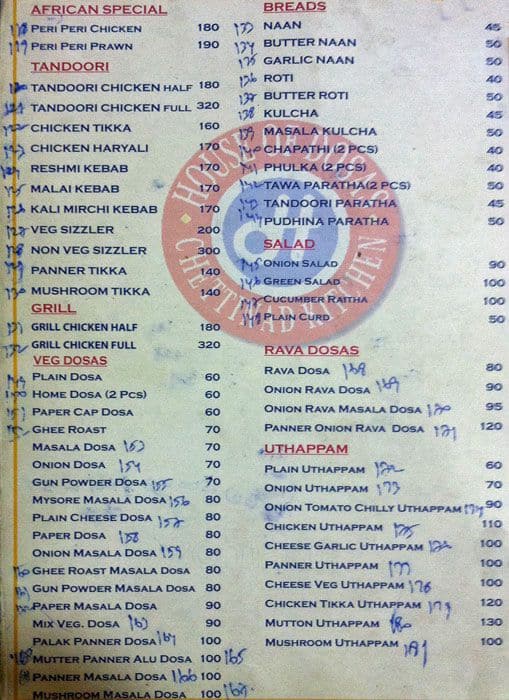 AFRICAN SPECIAL
PERI PERI CHICKEN 180
PERI PERI PRAWN 190
TANDOORI
TANDOORI CHICKEN HALF 180
TANDOORI CHICKEN FULL 320
CHICKEN TIKKA 160
CHICKEN HARYALI 170
RESHMI KEBAB 170
MALAI KEBAB 170
KALI MIRCHI KEBAB 170
VEG SIZZLER 200
NON VEG SIZZLER 300
PANNER TIKKA 140
MUSHROOM TIKKA 140
GRILL
GRILL CHICKEN HALF 180
GRILL CHICKEN FULL 320
VEG DOSAS
PLAIN DOSA 60
HOME DOSA (2 PCS) 60
PAPER CAP DOSA 60
GHEE ROAST 70
MASALA DOSA 153 70
ONION DOSA 154 70
GUN POWDER DOSA 155 70
MYSORE MASALA DOSA 156 80
PLAIN CHEESE DOSA 157 80
PAPER DOSA 158 80
ONION MASALA DOSA 159 80
GHEE ROAST MASALA DOSA 80
GUN POWDER MASALA DOSA 80
PAPER MASALA DOSA 90
MIX VEG. DOSA 163 90
PALAK PANNER DOSA 164 100
MUTTER PANNER ALU DOSA 100 165
PANNER MASALA DOSA 166 100
MUSHROOM MASALA DOSA 100 167
BREADS
NAAN 45
BUTTER NAAN 50
GARLIC NAAN 50
ROTI 40
BUTTER ROTI 50
KULCHA 45
MASALA KULCHA 50
CHAPATHI (2 PCS) 40
PHULKA (2 PCS) 40
TAWA PARATHA(2 PCS) 50
TANDOORI PARATHA 45
PUDHINA PARATHA 50
SALAD
ONION SALAD 90
GREEN SALAD 100
CUCUMBER RAITHA 100
PLAIN CURD 50
RAVA DOSAS
RAVA DOSA 168 80
ONION RAVA DOSA 169 90
ONION RAVA MASALA DOSA 170 95
PANNER ONION RAVA DOSA 171 120
UTHAPPAM
PLAIN UTHAPPAM 172 60
ONION UTHAPPAM 173 70
ONION TOMATO CHILLY UTHAPPAM 174 90
CHICKEN UTHAPPAM 175 110
CHEESE GARLIC UTHAPPAM 100
PANNER UTHAPPAM 177 100
CHEESE VEG UTHAPPAM 178 100
CHICKEN TIKKA UTHAPPAM 179 120
MUTTON UTHAPPAM 180 130
MUSHROOM UTHAPPAM 181 100
HOUSE OF DOSAS
CHETTINAD KITCHEN